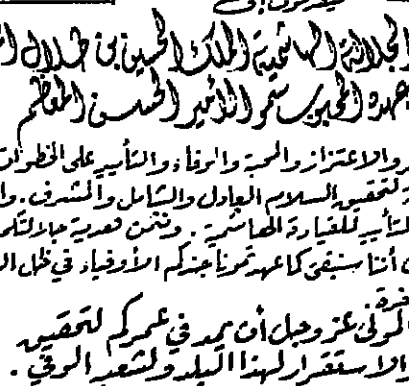 الجلالة الهاشمية الملك الحسين بن طلال
عهده المحبوب سمو الأمير الحسن المعظم
والاعتزاز والمحبة والوفاء والتأييد على الخطوات
لتحقيق السلام العادل والشامل والمشرف . وا
لتأييد للقيادة الهاشمية . ونثمن هدية جلالتكم
أننا سنبقى كما عهدتمونا جندكم الأوفياء في ظل ال
المولى عز وجل أن يمد في عمركم لتحقيق
والاستقرار لهذا البلد ولشعبه الوفي .